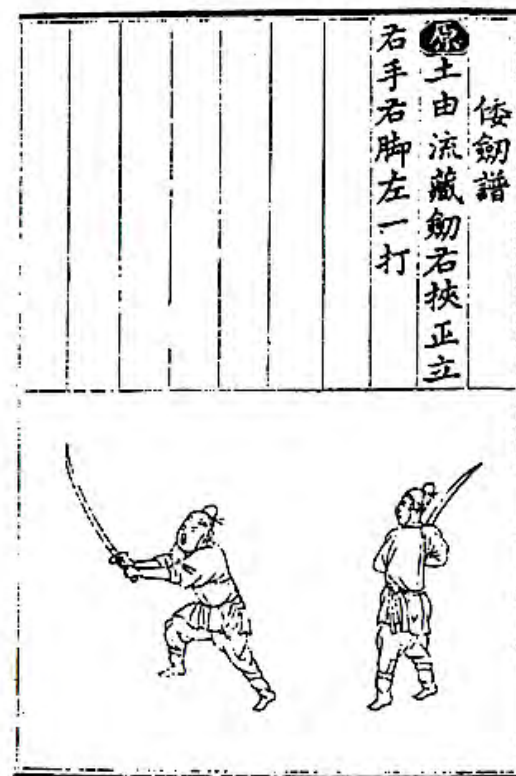 倭劒譜
原土由流藏劒右挾正立
右手右脚左一打